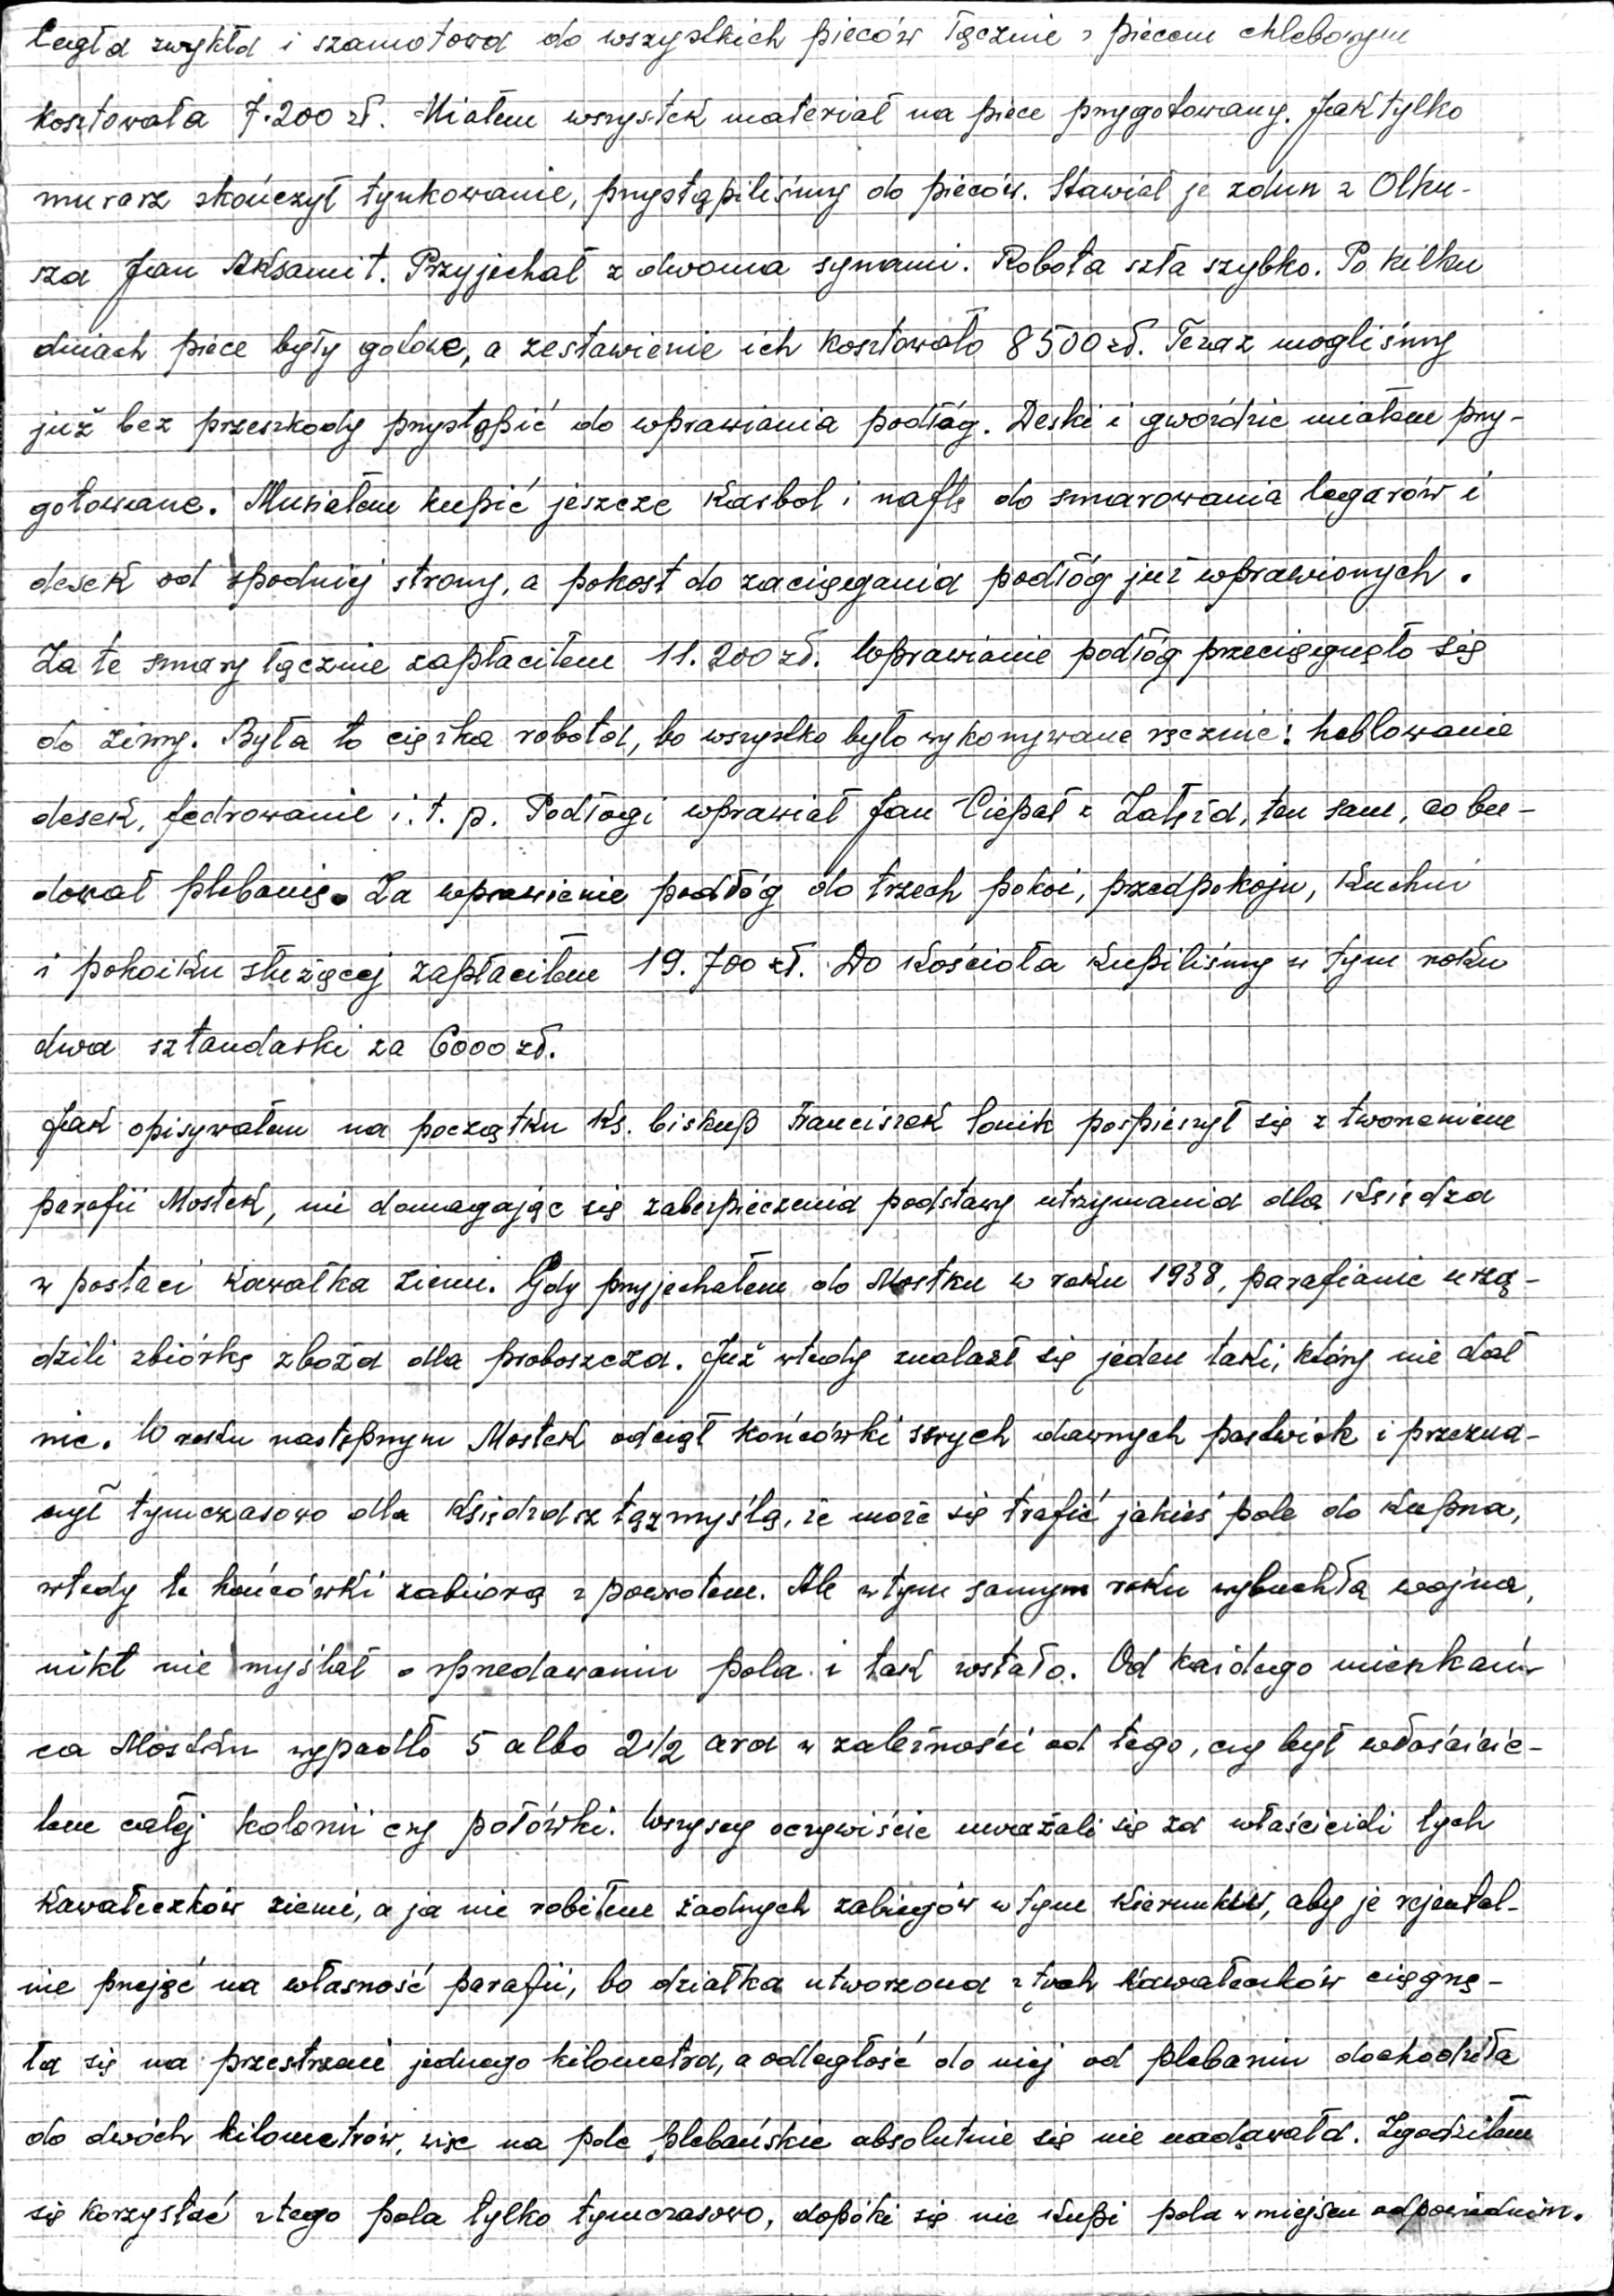 Cegła zwykła i szamotowa do wszystkich pieców łącznie z piecem chlebowym
kosztowała 7.200 zł. Miałem wszystek materiał na piece przygotowany. Jak tylko
murarz skończył tynkowanie, przystąpiliśmy do pieców. Stawiał je zdun z Olku-
sza Jan Aksamit. Przyjechał z dwoma synami. Robota szła szybko. Po kilku
dniach piece były gotowe, a zestawienie ich kosztowało 8500 zł. Teraz mogliśmy
już bez przeszkody przystąpić do wprawiania podłóg. Deski i gwoździe miałem przy-
gotowane. Musiałem kupić jeszcze karbol i naftę do smarowania legarów i
desek od spodniej strony, a pokost do zaciągania podłóg już wprawionych.
Za te smary łącznie zapłaciłem 11.200 zł. Wprawianie podłóg przeciągnęło się
do zimy. Była to ciężka robota, bo wszystko było wykonywane ręcznie: heblowanie
desek, fedrowanie i.t.p. Podłogi wprawiał Jan Ciepał z Załęża, ten sam, co bu-
dował plebanię. Za wprawienie podłóg do trzech pokoi, przedpokoju, kuchni
i pokoiku służącej zapłaciłem 19.700 zł. Do kościoła kupiliśmy w tym roku
dwa sztandarki za 6000 zł.
Jak opisywałem na początku ks. biskup Franciszek Sonik pospieszył się z tworzeniem
parafii Mostek, nie domagając się zabezpieczenia podstawy utrzymania dla księdza
w postaci kawałka ziemi. Gdy przyjechałem do Mostku w roku 1938, parafianie urzą-
dzili zbiórkę zboża dla proboszcza. Już wtedy znalazł się jeden taki, który nie dał
nic. W roku następnym Mostek odciął końcówki swych dawnych pastwisk i przezna-
czył tymczasowo dla księdza z tą myślą, że może się trafić jakieś pole do kupna,
wtedy te końcówki zabiorą z powrotem. Ale w tym samym roku wybuchła wojna,
nikt nie myślał o sprzedawaniu pola i tak zostało. Od każdego mieszkań-
ca Mostku wypadło 5 albo 2 1/2 ara w zależności od tego, czy był właścicie-
lem całej kolonii czy połówki. Wszyscy oczywiście uważali się za właścicieli tych
kawałeczków ziemi, a ja nie robiłem żadnych zabiegów w tym kierunku, aby je rejental-
nie przejąć na własność parafii, bo działka utworzona z tych kawałeczków ciągnę-
ła się na przestrzeni jednego kilometra, a odległość do niej od plebanii dochodziła
do dwóch kilometrów, więc na pole plebańskie absolutnie się nie nadawała. Zgodziłem
się korzystać z tego pola tylko tymczasowo, dopóki się nie kupi pola w miejscu odpowiednim.